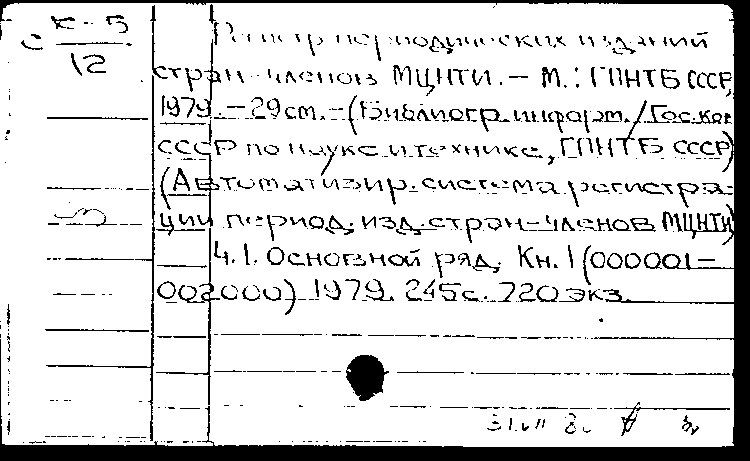 с К-5
12
Регистр периодических изданий
стран-членов МЦНТИ. - М.: ГПНТБ СССР,
1979. - 29 см. - (Библиогр. информ. / Гос. ком.
СССР по науке и технике, ГПНТБ СССР)
(Автоматизир. система регистра-
ции период. изд. стран-членов МЦНТИ)
Ч.1. Основной ряд, Кн. 1 (000001-
002000) 1979. 245 с. 720 экз.